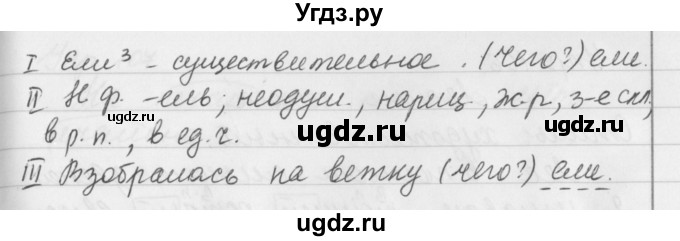 Угдз.ру
I Ели³ - существительное. (чего?) ели.
II Н.ф. - ель; неодуш., нариц., ж.р., 3-е скл.,
в р.п., в ед.ч.
ugdz.ru
ugdz.ru
III Взобралась на ветку (чего?) ели.
ugdz.ru
ugdz.ru